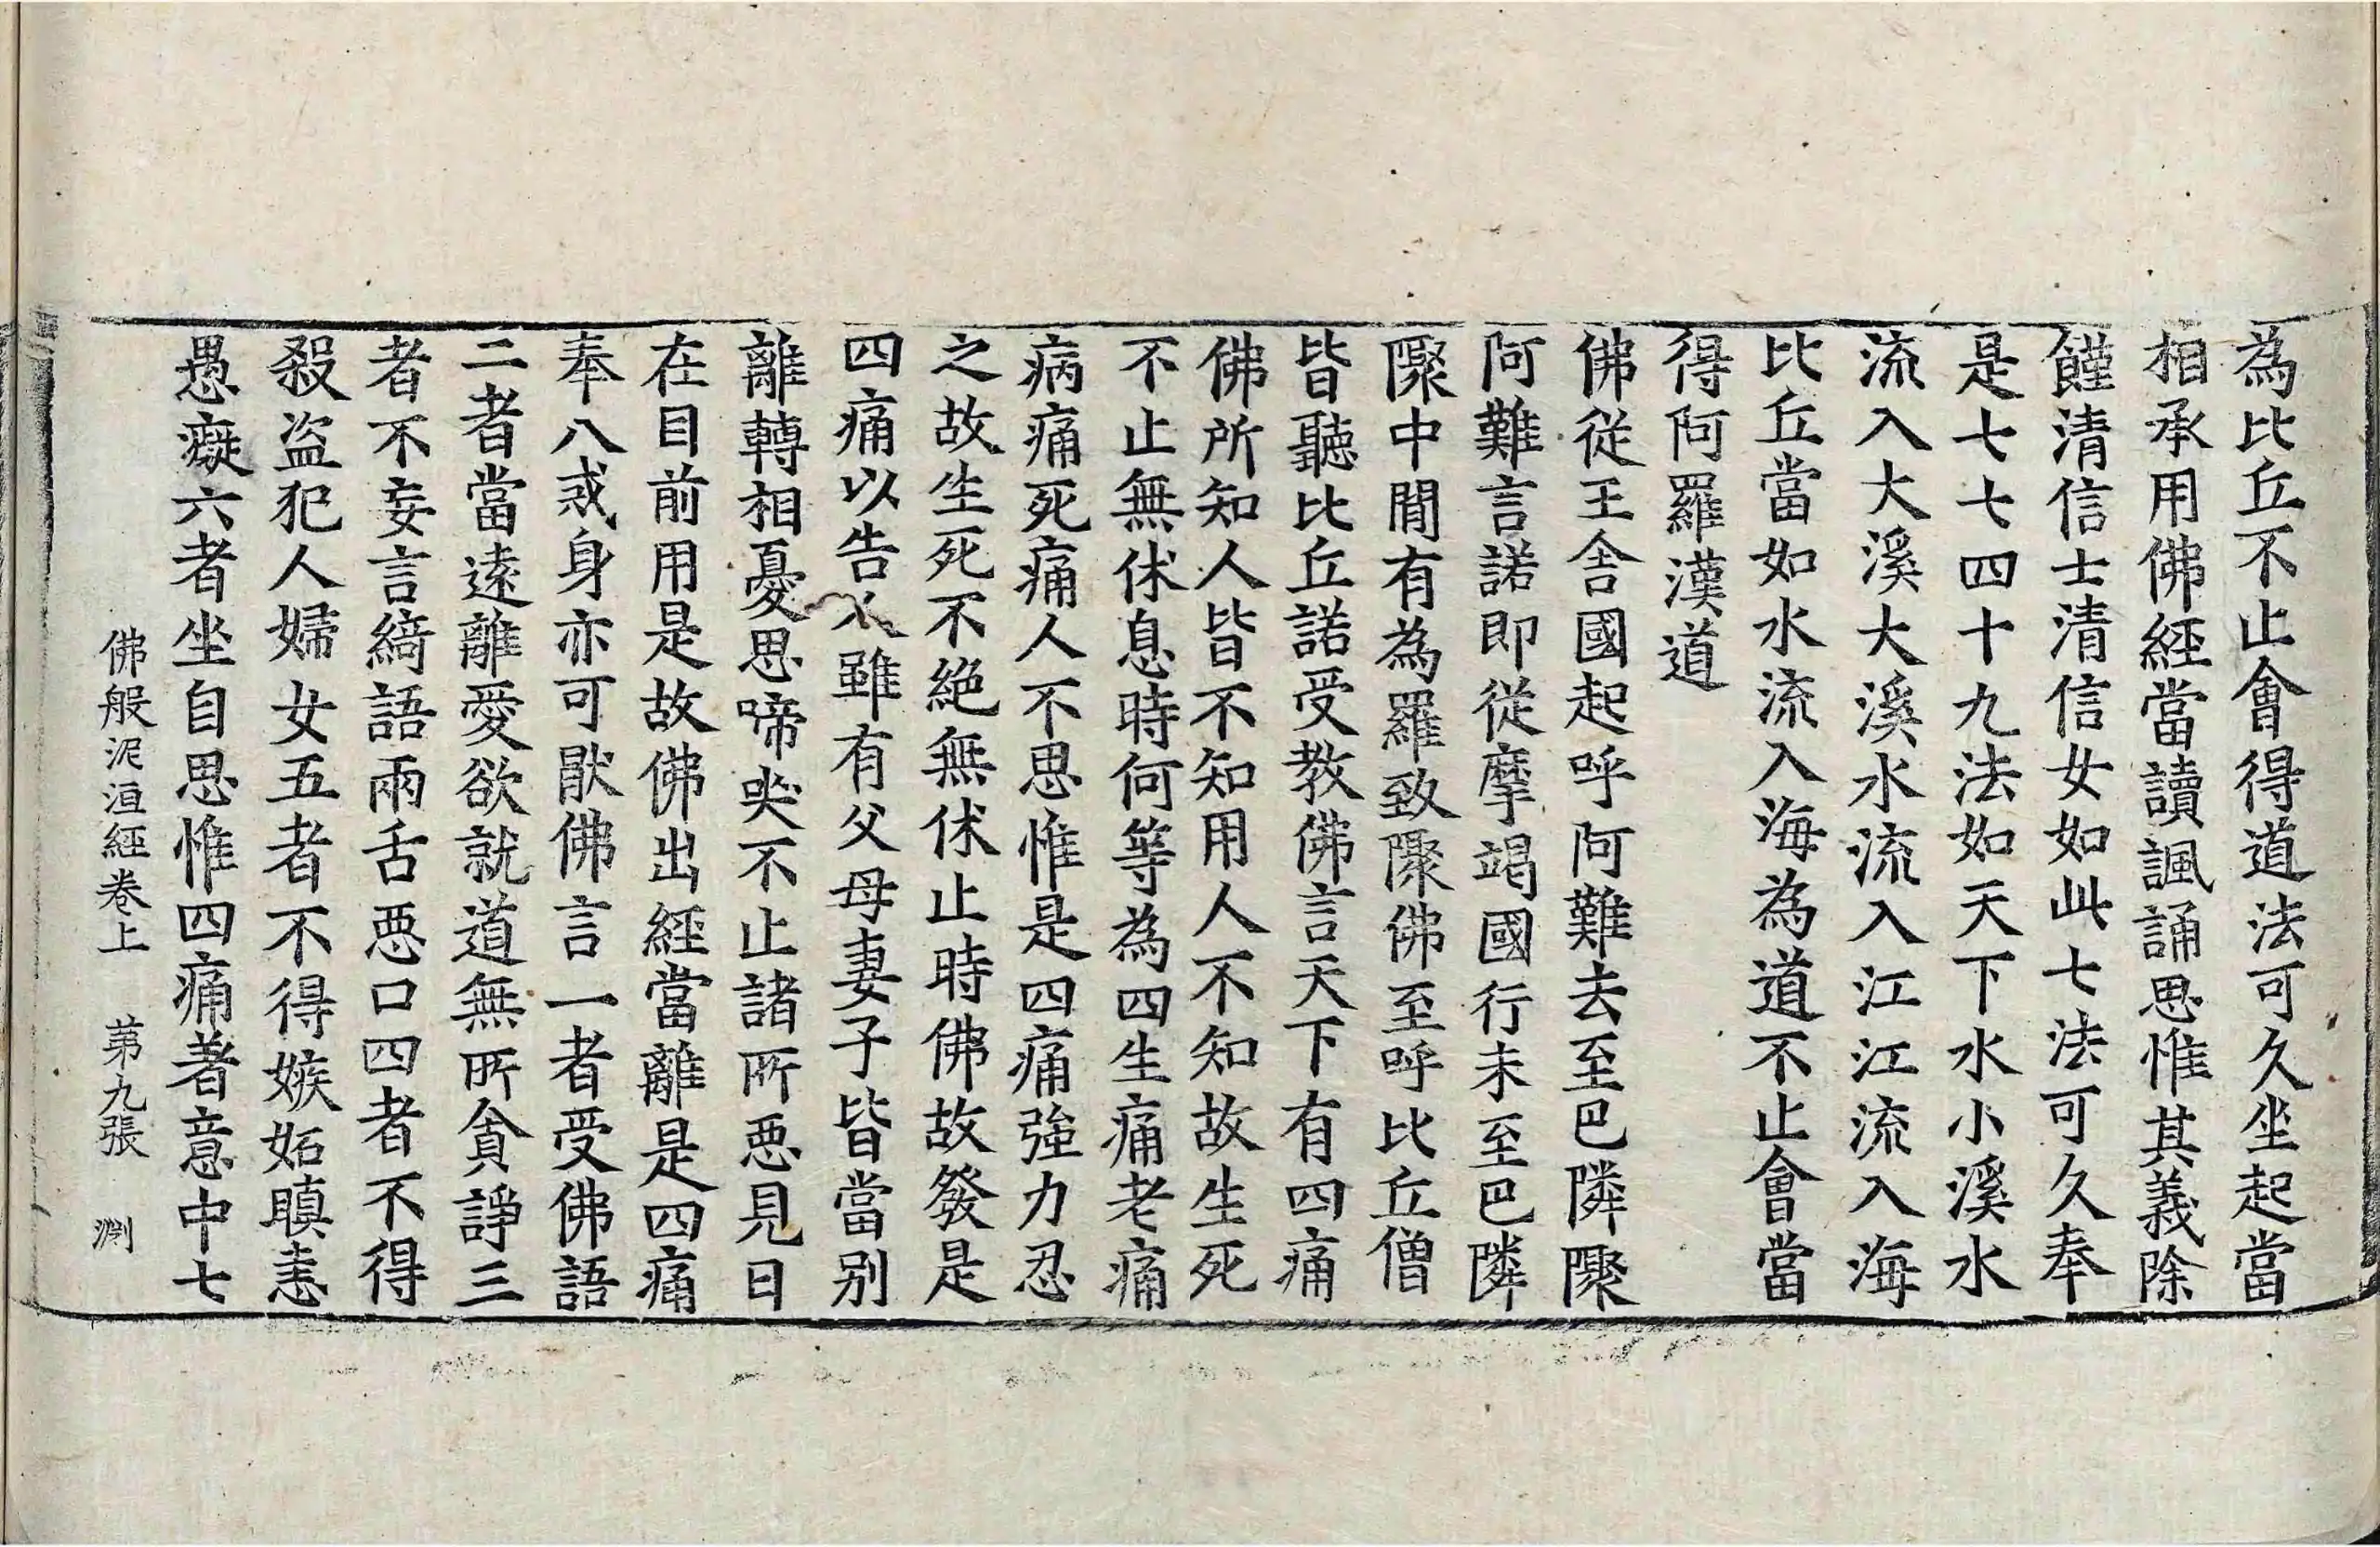 為比丘不止會得道法可久坐起當
相承用佛經當讀諷誦思惟其義除
饉清信士清信女如此七法可久奉
是七七四十九法如天下水小溪水
流入大溪大溪水流入江江流入海
比丘當如水流入海為道不止會當
得阿羅漢道
佛從王舍國起呼阿難去至巴隣聚
阿難言諾即從摩竭國行未至巴隣
聚中間有為羅致聚佛至呼比丘僧
皆聽比丘諾受教佛言天下有四痛
佛所知人皆不知用人不知故生死
不止無休息時何等為四生痛老痛
病痛死痛人不思惟是四痛強力忍
之故生死不絕無休止時佛故發是
四痛以告人雖有父母妻子皆當別
離轉相憂思啼哭不止諸所惡見日
在目前用是故佛出經當離是四痛
奉八戒身亦可猒佛言一者受佛語
二者當遠離愛欲就道無所貪諍三
者不妄言綺語兩舌惡口四者不得
殺盜犯人婦女五者不得嫉妬瞋恚
愚癡六者坐自思惟四痛著意中七
佛般泥洹經卷上 第九張 淵